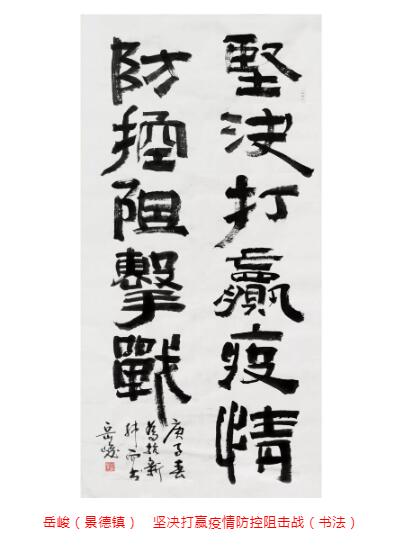 堅決打贏疫情
防控阻擊戰
庚子春
為抗新
肺而书
岳峻
岳峻（景德镇） 坚决打赢疫情防控阻击战（书法）